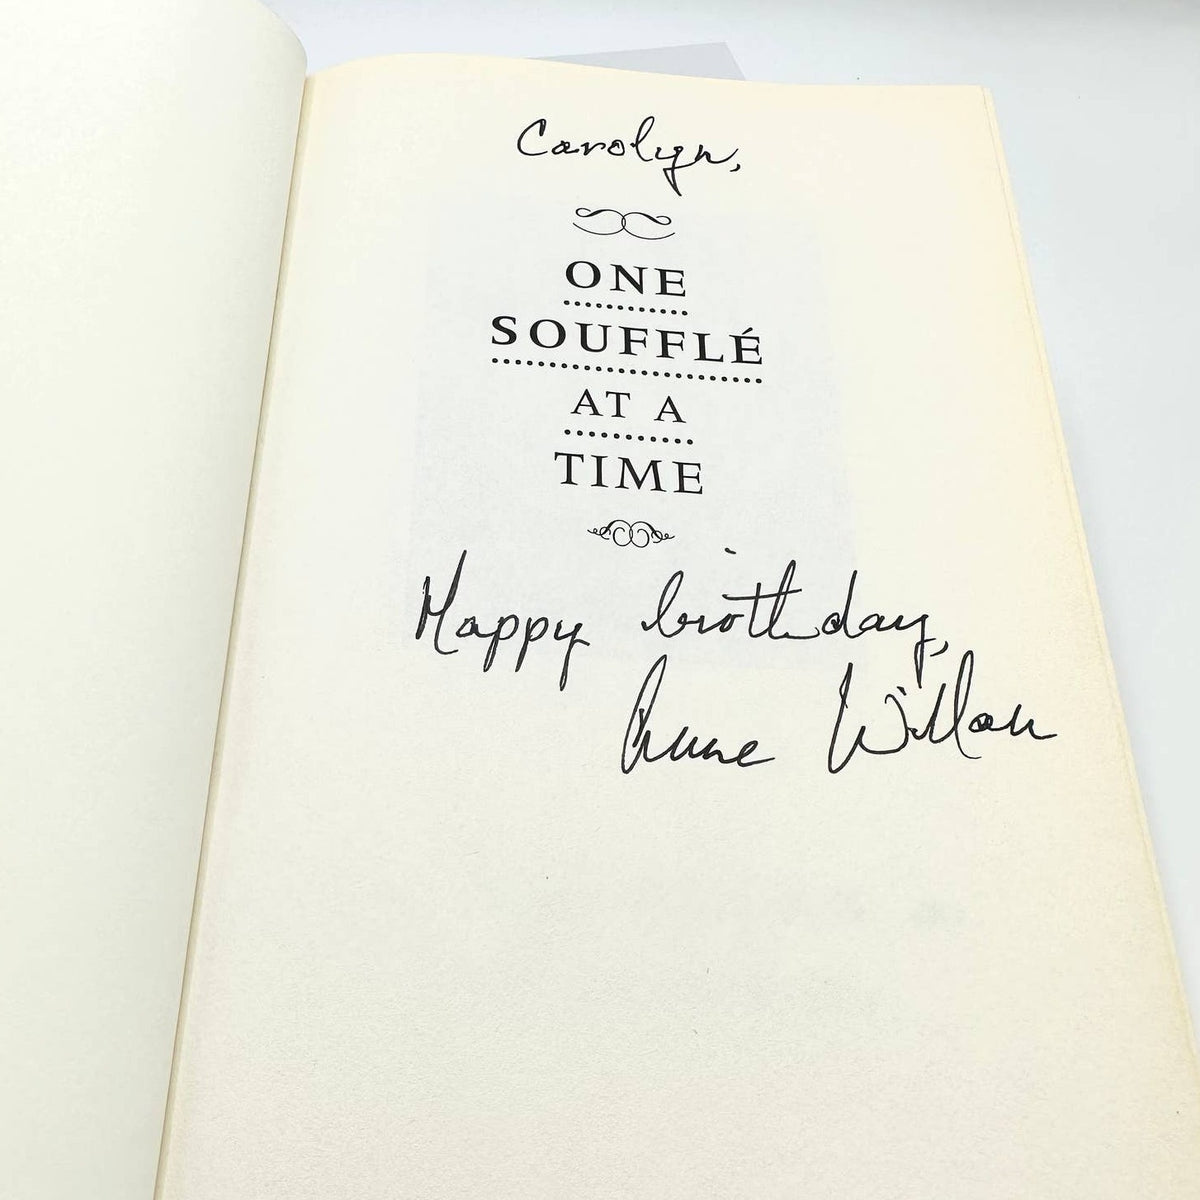 Carolyn,
ONE
SOUFFLÉ
AT A
TIME
Happy birthday,
Anne Willan